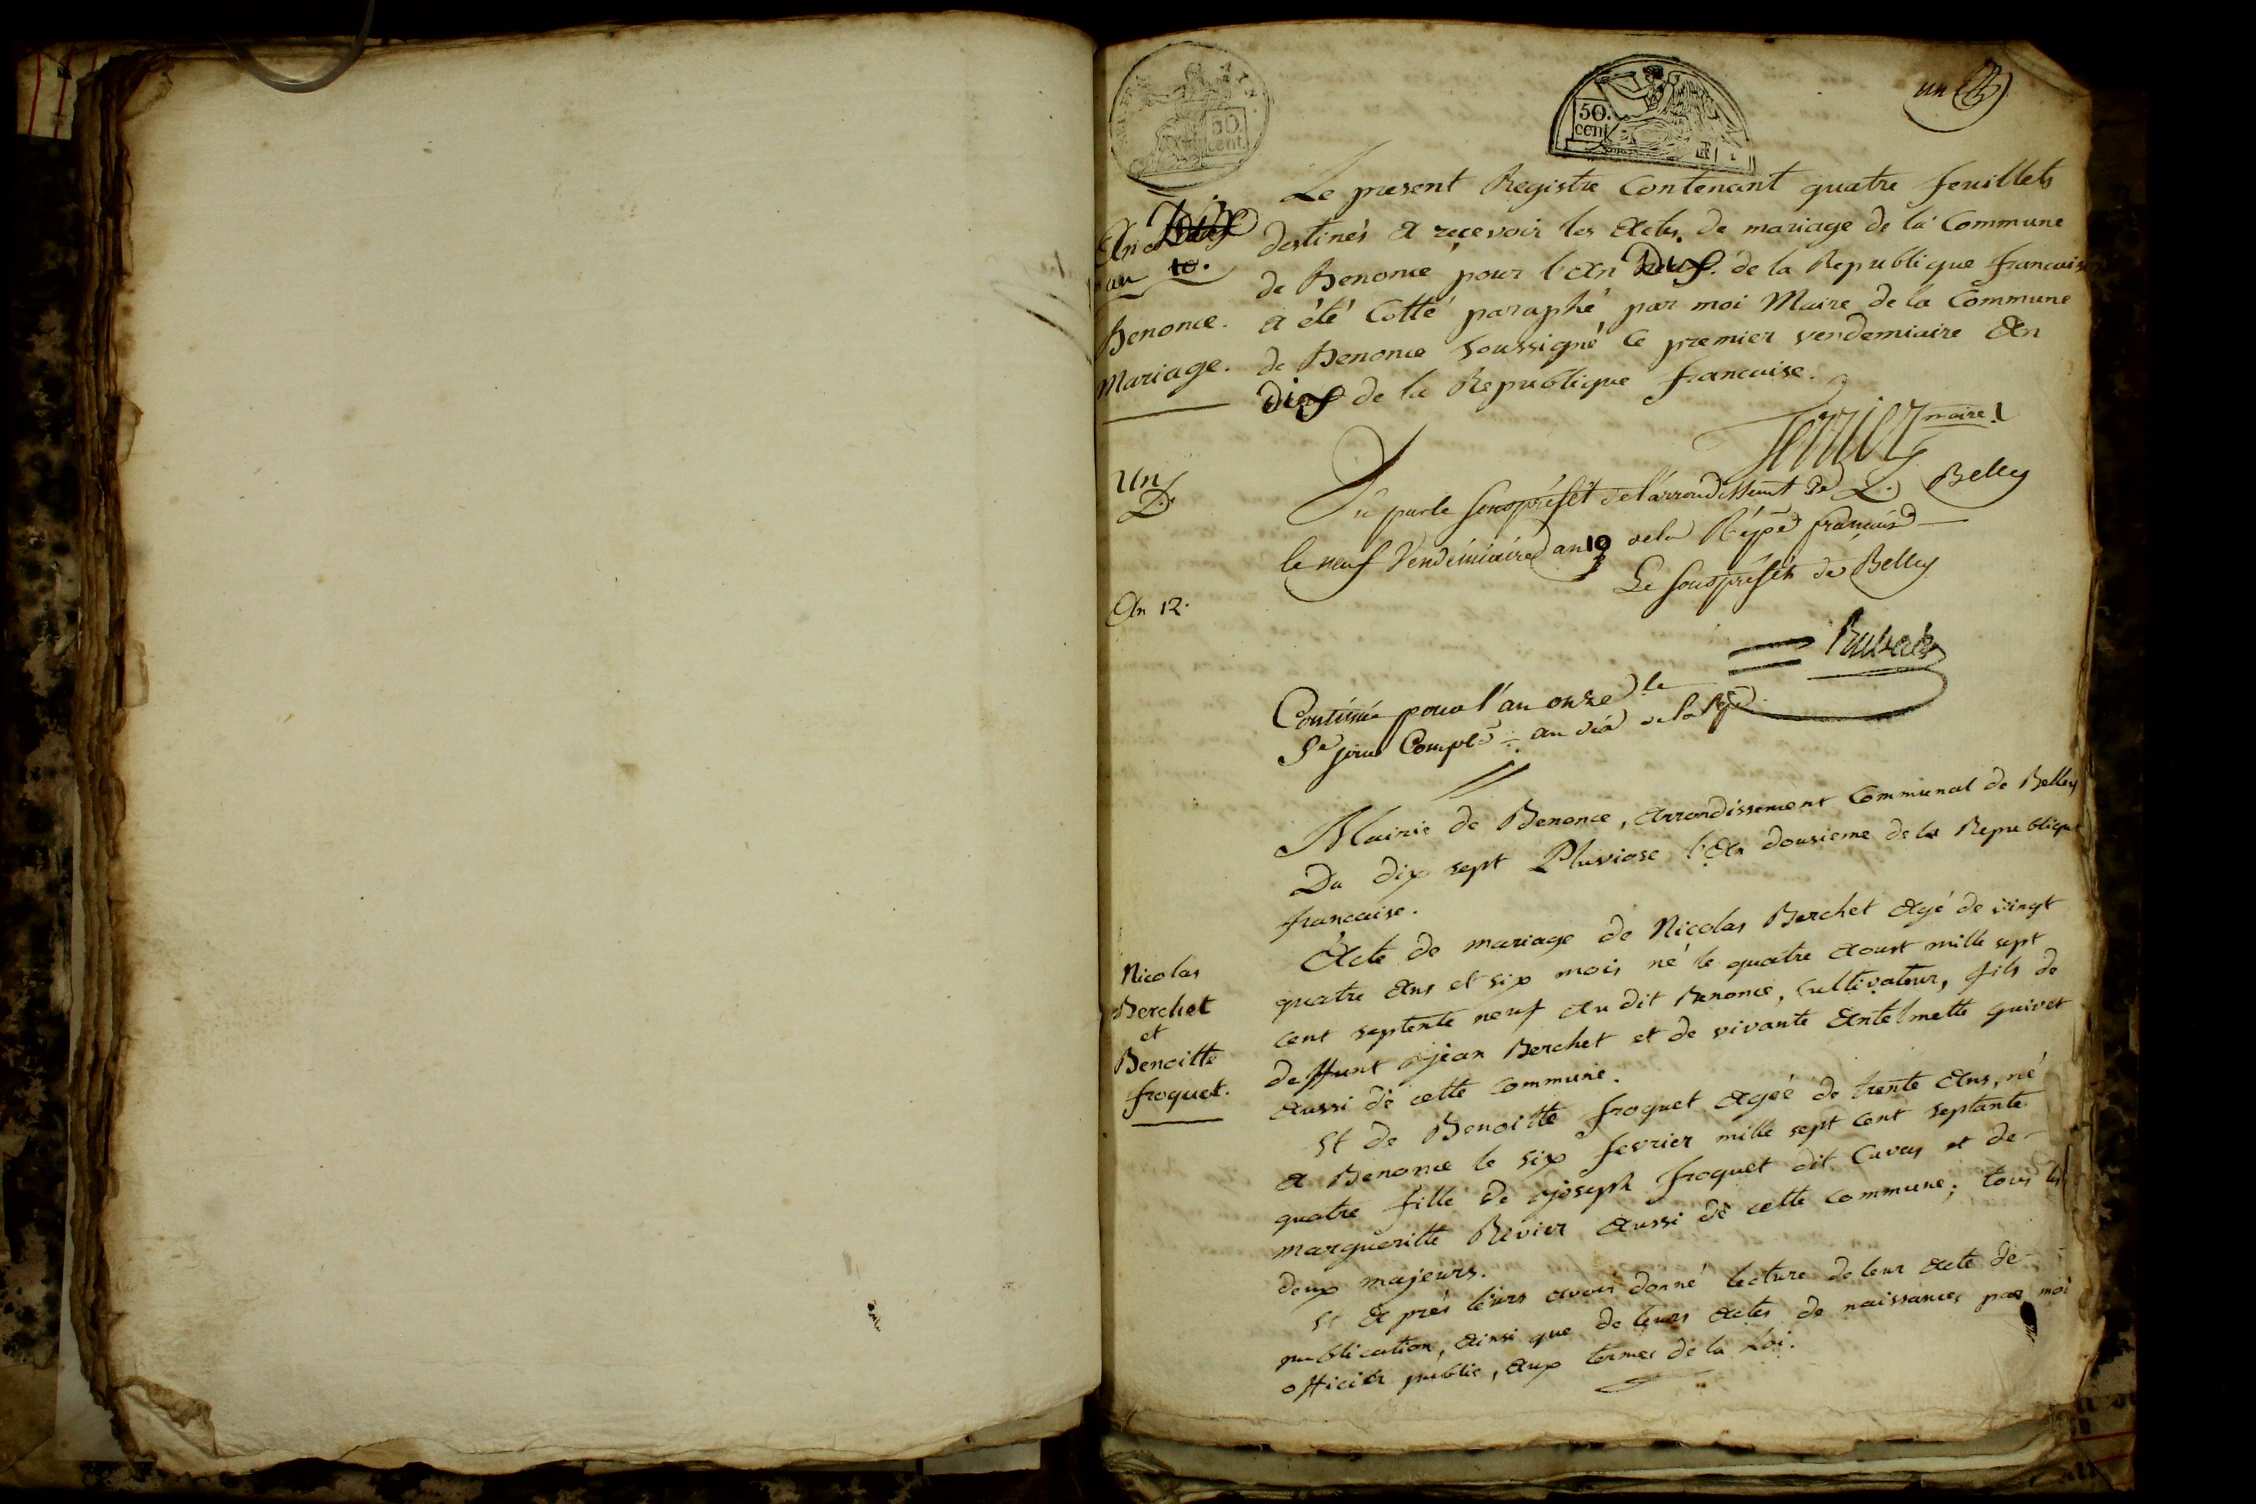 un
50.
cent
50.
cent.
Le present Registre Contenant quatre feuillets
destinés a recevoir les Actes de mariage de la Commune
de Benonce pour l'An Dix de la Republique francaise
a été Cotté paraphé, par moi Maire de la Commune
de Benonce Soussigné le premier vendemiaire An
Dix de la Republique francaise.
An Dix
an 10.
Benonce.
Mariage.
maire
Vu par le Sousprefet de l'arrondissemt de Belley
le neuf Vendemiaire an 10 de la Répe francaise
Le Sousprefet de Belley
Un
An 12.
Continué pour l'an onze le
5e jour Comple an dix de la Re
Mairie de Benonce, Arrondissement Communal de Belley
Du dix sept Pluviose l'An dousieme de la Republique
francaise.
Nicolas
Berchet
et
Benoitte
froquet.
Acte de mariage de Nicolas Berchet Agé de vingt
quatre Ans et six mois né le quatre Aoust mille sept
cent septente neuf Au dit Benonce, Cultivateur, fils de
deffunt jean Berchet et de vivante Antelmette quivet
Aussi de cette Commune.
Et de Benoitte froquet Agée de trente Ans, né
A Benonce le six fevrier mille sept cent septante
quatre fille de joseph froquet dit Cuvas et de
margueritte Revier Aussi de cette Commune; tous les
deux majeurs.
Et Après leurs avoir donné lecture de leur Acte de
publication, Ainsi que de leurs Actes de naissances par moi
officier public, Aux termes de la Loi.